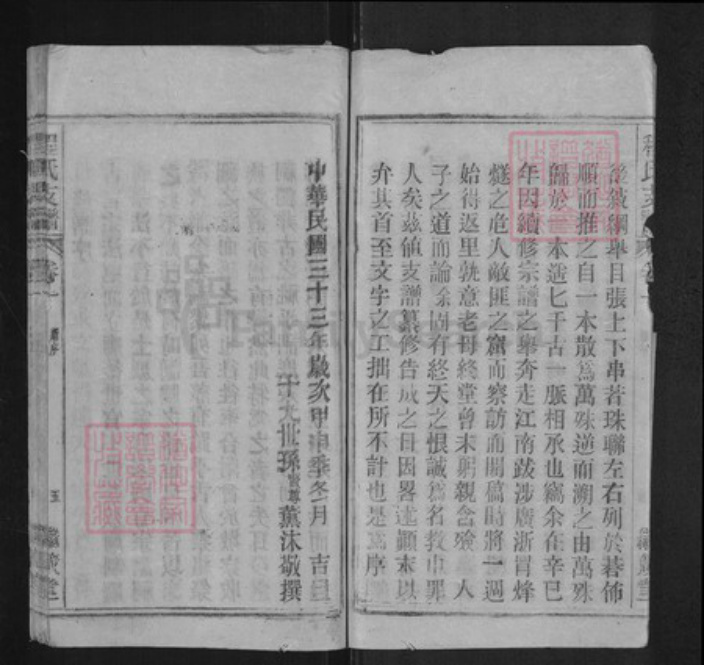 登載綱舉目張上下串若珠聯左右列於碁佈
順而推之自一本散為萬殊逆而溯之由萬殊
歸於一本遙匕千古一脈相承也竊余在辛巳
年因續修宗譜之舉奔走江南跋涉廣浙冒烽
燧之危入敵匪之窟而察訪而開稿時將一週
始得返里孰意老母終堂曾未躬親含殮 人
子之道而論余固有終天之恨誠為名教中罪
人矣茲值支譜纂修告成之日因畧述顛末以
弁其首至文字之工拙在所不計也是為序
中華民國三十三年歲次甲申季冬月 吉旦
十九世孫 薰沐敬撰
程氏支譜
卷一
五